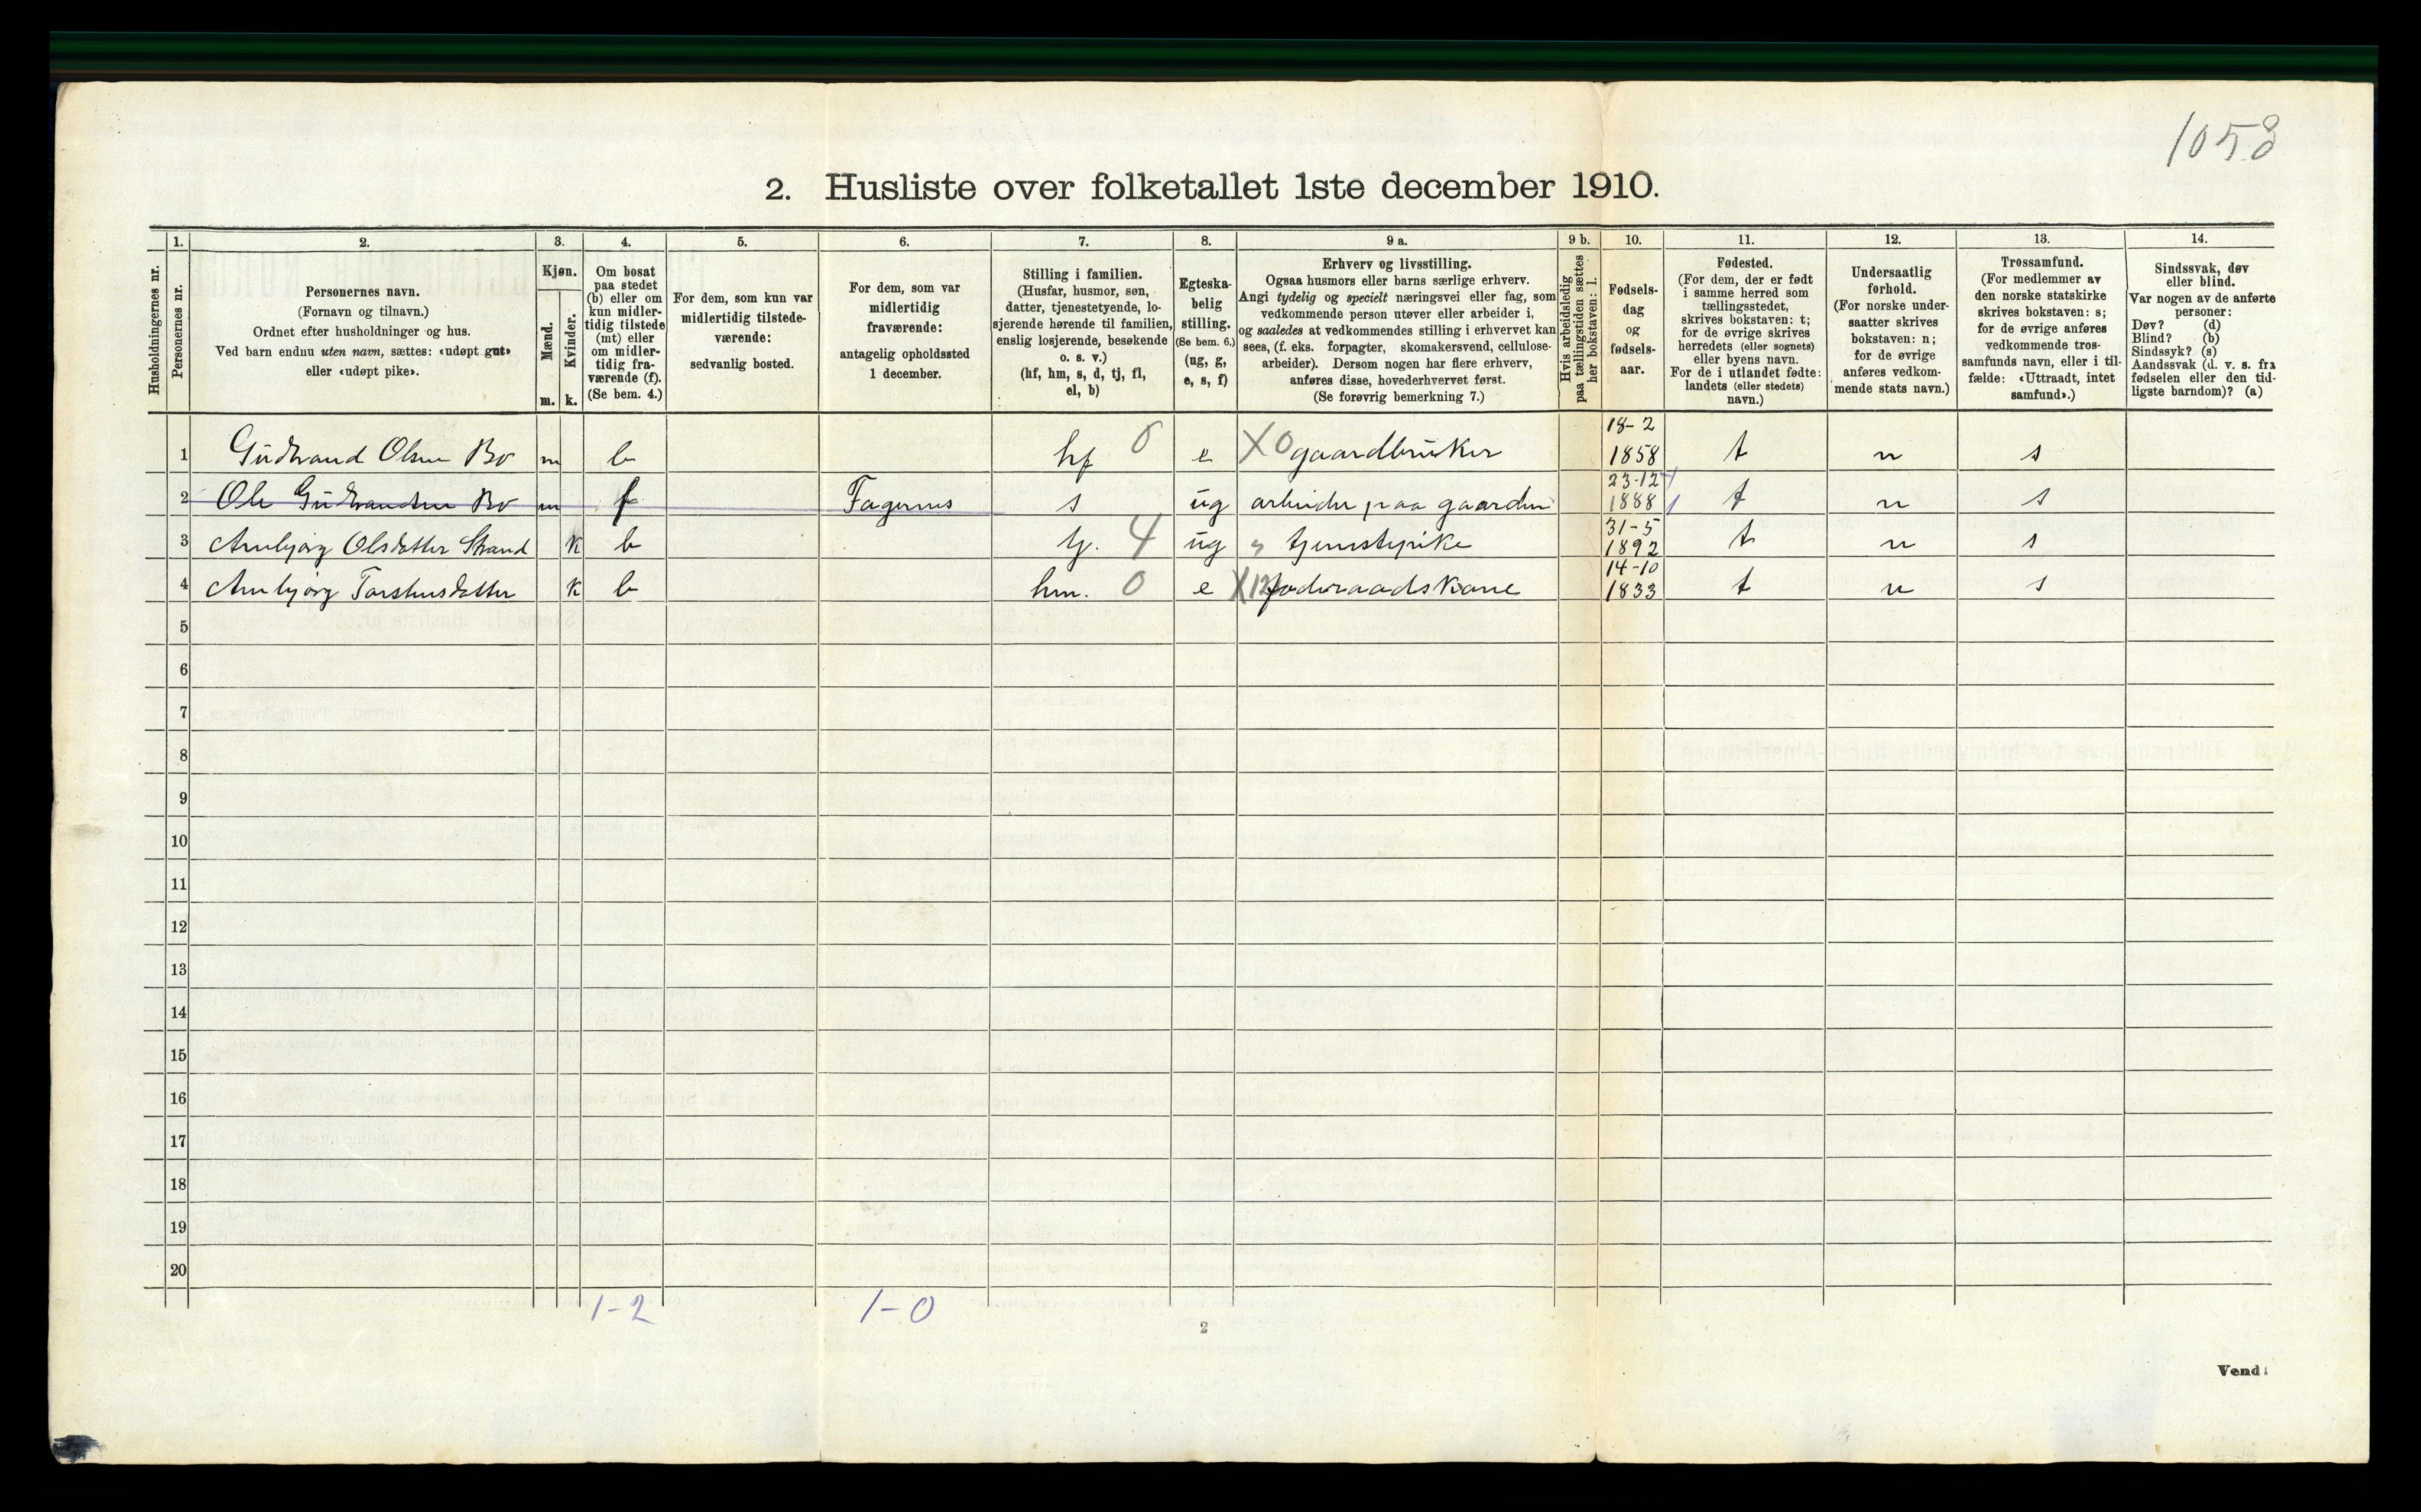 1053
2. Husliste over folketallet 1ste december 1910.
1. 2. 3. 4. 5. 6. 7. 8. 9 a. 9 b. 10. 11. 12. 13. 14.
Husholdningernes nr.
Personernes nr.
Personernes navn.
(Fornavn og tilnavn.)
Ordnet efter husholdninger og hus.
Ved barn endnu uten navn, sættes: «udøpt gut»
eller «udøpt pike».
Kjøn.
Mænd.
Kvinder.
m. k.
Om bosat
paa stedet
(b) eller om
kun midler-
tidig tilstede
(mt) eller
om midler-
tidig fra-
værende (f).
(Se bem. 4.)
For dem, som kun var
midlertidig tilstede-
værende:
sedvanlig bosted.
For dem, som var
midlertidig
fraværende:
antagelig opholdssted
1 december.
Stilling i familien.
(Husfar, husmor, søn,
datter, tjenestetyende, lo-
sjerende hørende til familien,
enslig losjerende, besøkende
o. s. v.)
(hf, hm, s, d, tj, fl,
el, b)
Egteska-
belig
stilling.
(Se bem. 6.)
(ug, g,
e, s, f)
Erhverv og livsstilling.
Ogsaa husmors eller barns særlige erhverv.
Angi tydelig og specielt næringsvei eller fag, som
vedkommende person utøver eller arbeider i,
og saaledes at vedkommendes stilling i erhvervet kan
sees, (f. eks. forpagter, skomakersvend, cellulose-
arbeider). Dersom nogen har flere erhverv,
anføres disse, hovederhvervet først.
(Se forøvrig bemerkning 7.)
Hvis arbeidsledig
paa tællingstiden sættes
her bokstaven: l.
Fødsels-
dag
og
fødsels-
aar.
Fødested.
(For dem, der er født
i samme herred som
tællingsstedet,
skrives bokstaven: t;
for de øvrige skrives
herredets (eller sognets)
eller byens navn.
For de i utlandet fødte:
landets (eller stedets)
navn.)
Undersaatlig
forhold.
(For norske under-
saatter skrives
bokstaven: n;
for de øvrige
anføres vedkom-
mende stats navn.)
Trossamfund.
(For medlemmer av
den norske statskirke
skrives bokstaven: s;
for de øvrige anføres
vedkommende tros-
samfunds navn, eller i til-
fælde: «Uttraadt, intet
samfund».)
Sindssvak, døv
eller blind.
Var nogen av de anførte
personer:
Døv? (d)
Blind? (b)
Sindssyk? (s)
Aandssvak (d. v. s. fra
fødselen eller den tid-
ligste barndom)? (a)
1 Gudbrand Olsen Bø m b hf 0 e X0 gaardbruker 18-2 1858 t n s
2 Ole Gudbrandsen Bø m f Fagernes s ug arbeider paa gaarden 23-12 1888 t n s
3 Arnbjørg Olsdatter Strand k b tj. 4 ug tjenestepike 31-5 1892 t n s
4 Arnbjørg Torstensdatter k b hm. 0 e X12 foderaadskone 14-10 1833 t n s
5
6
7
8
9
10
11
12
13
14
15
16
17
18
19
20
1-2 1-0
2
Vend!